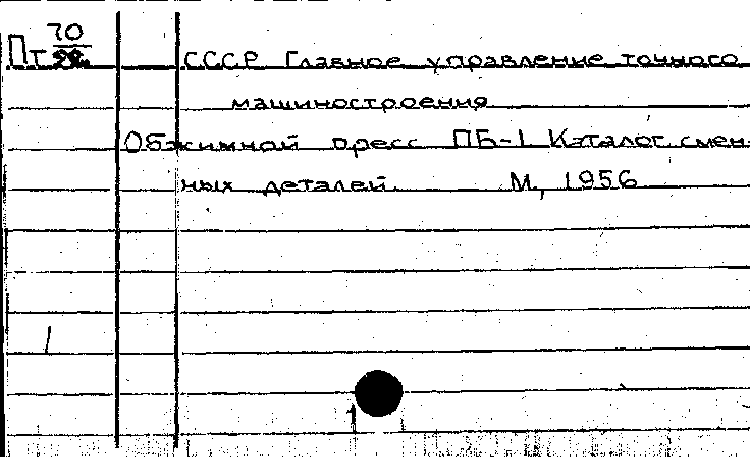 Пт 70
СССР Главное управление точного
машиностроения
Обжимной пресс ПБ-1 Каталог смен-
ных деталей. М., 1956